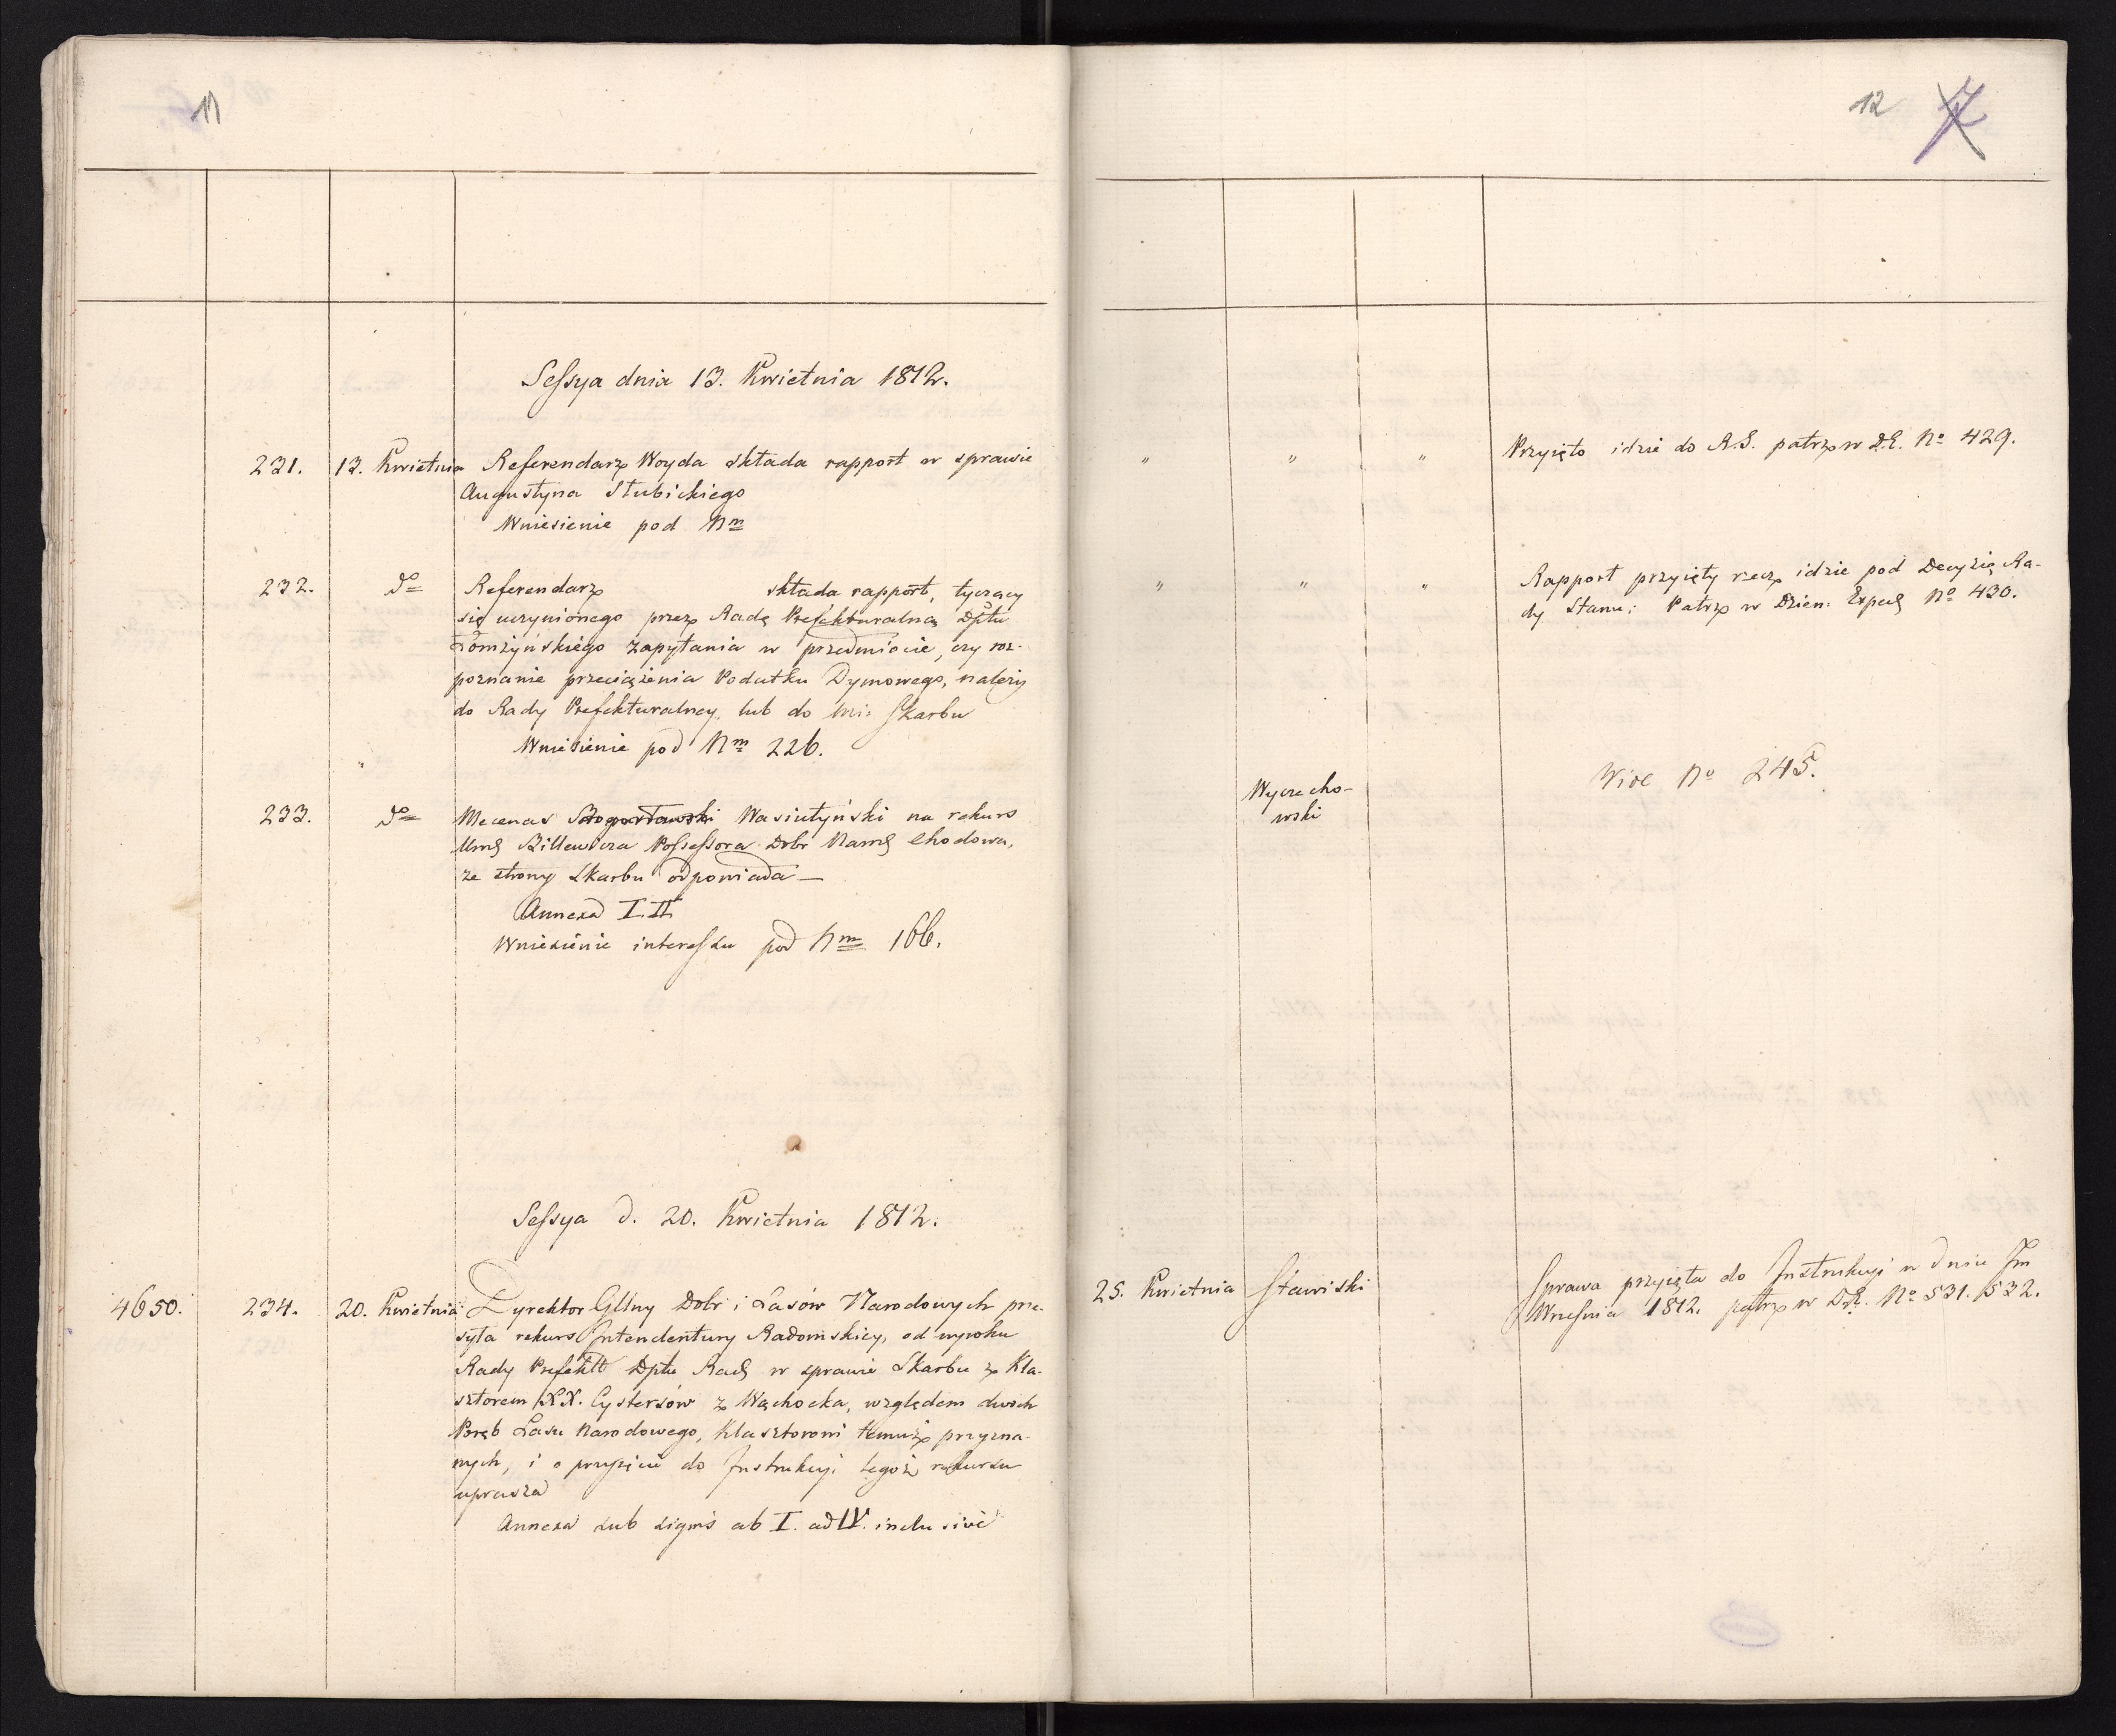 11
Sessya dnia 13. Kwietnia 1812.
231. 13. Kwietnia Referendarz Woyda składa rapport w sprawie
Augustyna Słubickiego
Wniesienie pod Nm
232. do Referendarz składa rapport, tyczący
się uczynionego przez Radę Prefekturalną Dptu
Łomżyńskiego zapytania w przedmiocie, czy roz-
poznanie przeciążenia Podatku Dymowego, należy
do Rady Prefekturalney, lub do Min: Skarbu
Wniesienie pod Nm 226.
233. do Mecenas Wasiutyński na rekurs
Billewicza Possessora Dobr Chodowa,
ze strony Skarbu odpowiada —
Annexa I. II.
Wniesienie interessu pod Nm 166.
Sessya d. 20. Kwietnia 1812.
4650. 234. 20. Kwietnia Dyrektor Gllny Dobr i Lasów Narodowych prze-
syła rekurs Intendentury Radomskiey, od wyroku
Rady Prefektt Dptu Rad w sprawie Skarbu z Kla-
sztorem XX. Cystersów z Wąchocka, względem dwóch
Poręb Lasu Narodowego, Klasztorowi temuż przyzna-
nych, i o przyjęcie do Instrukcyi tegoż rekursu
uprasza
Annexa sub signis ab I. ad IV. inclusive
12 7
" " " Przyięto idzie do R.S. patrz w D.E. No 429.
" " " Rapport przyięty rzecz idzie pod Decyzią Ra-
dy Stanu; Patrz w Dzien: Exped No 430.
Wyczecho-
wski
Vide No 245.
25. Kwietnia Stawiski Sprawa przyięta do Instrukcyi w dniu 7m
Września 1812. patrz w D.E. No 531. 532.